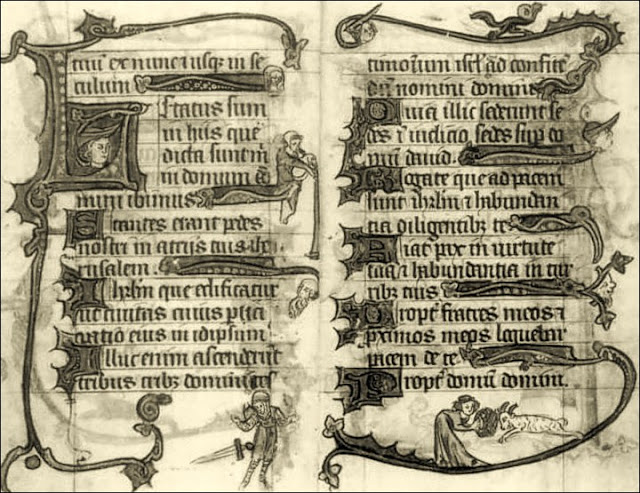 tuū ex nunc ⁊ usqꝫ in se
culum
Letatus sum
in hiis que
dicta sunt m̄
in domum do
mini ibimus
Stantes erant pedes
nostri in atriis tuis ihe
rusalem
Ihrlm̄ que edificatur
ut civitas cuius ptici
patio eius in idipsum
Illuc enim ascenderūt
tribus tribꝫ domini tes
timonium isrl̄ ad confite
dū nomini domini
Quia illic sederunt se
des ī iudicio sedes sup do
mū david
Rogate que ad pacem
sunt ihrlm̄ ⁊ habundan
tia diligentibꝫ te
Fiat pax in virtute
tua ⁊ habundantia in tur
ribꝫ tuis
Propt̄ fratres meos ⁊
pximos meos loquebar
pacem de te
Propt̄ domū domini.